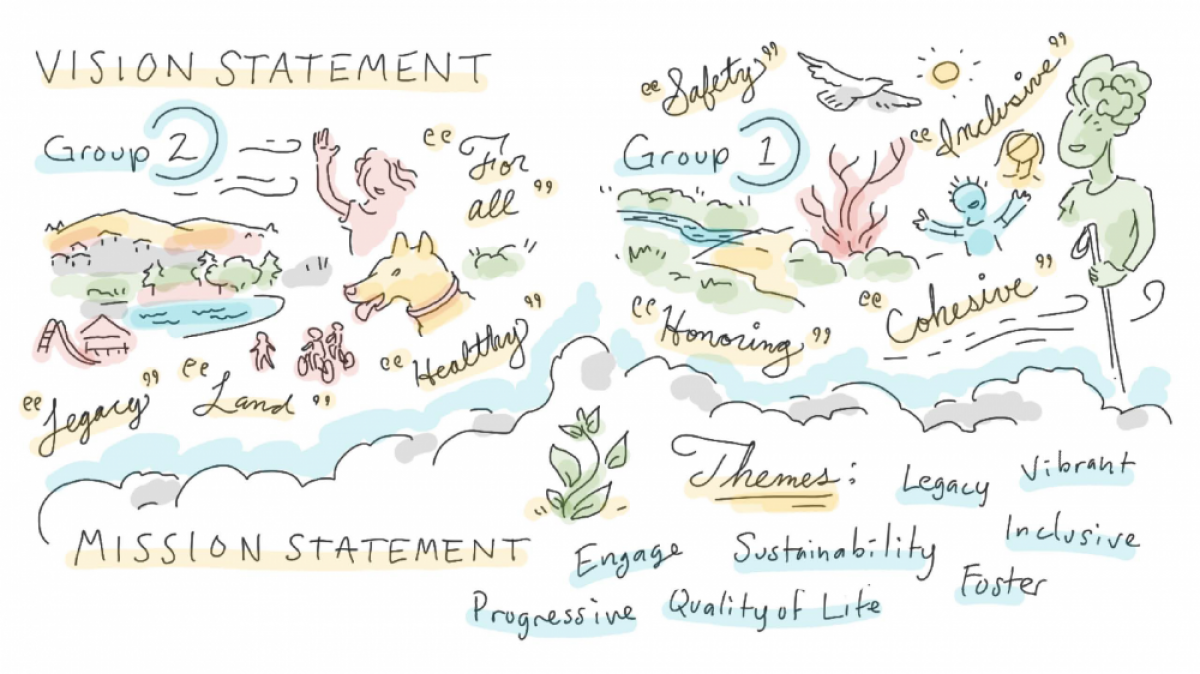 VISION STATEMENT
Group 2
"For
all"
"Healthy"
"Land"
"Legacy"
Group 1
"Safety"
"Inclusive"
"Honoring"
"Cohesive"
MISSION STATEMENT
Themes:
Legacy
Vibrant
Engage
Sustainability
Inclusive
Progressive
Quality of Life
Foster